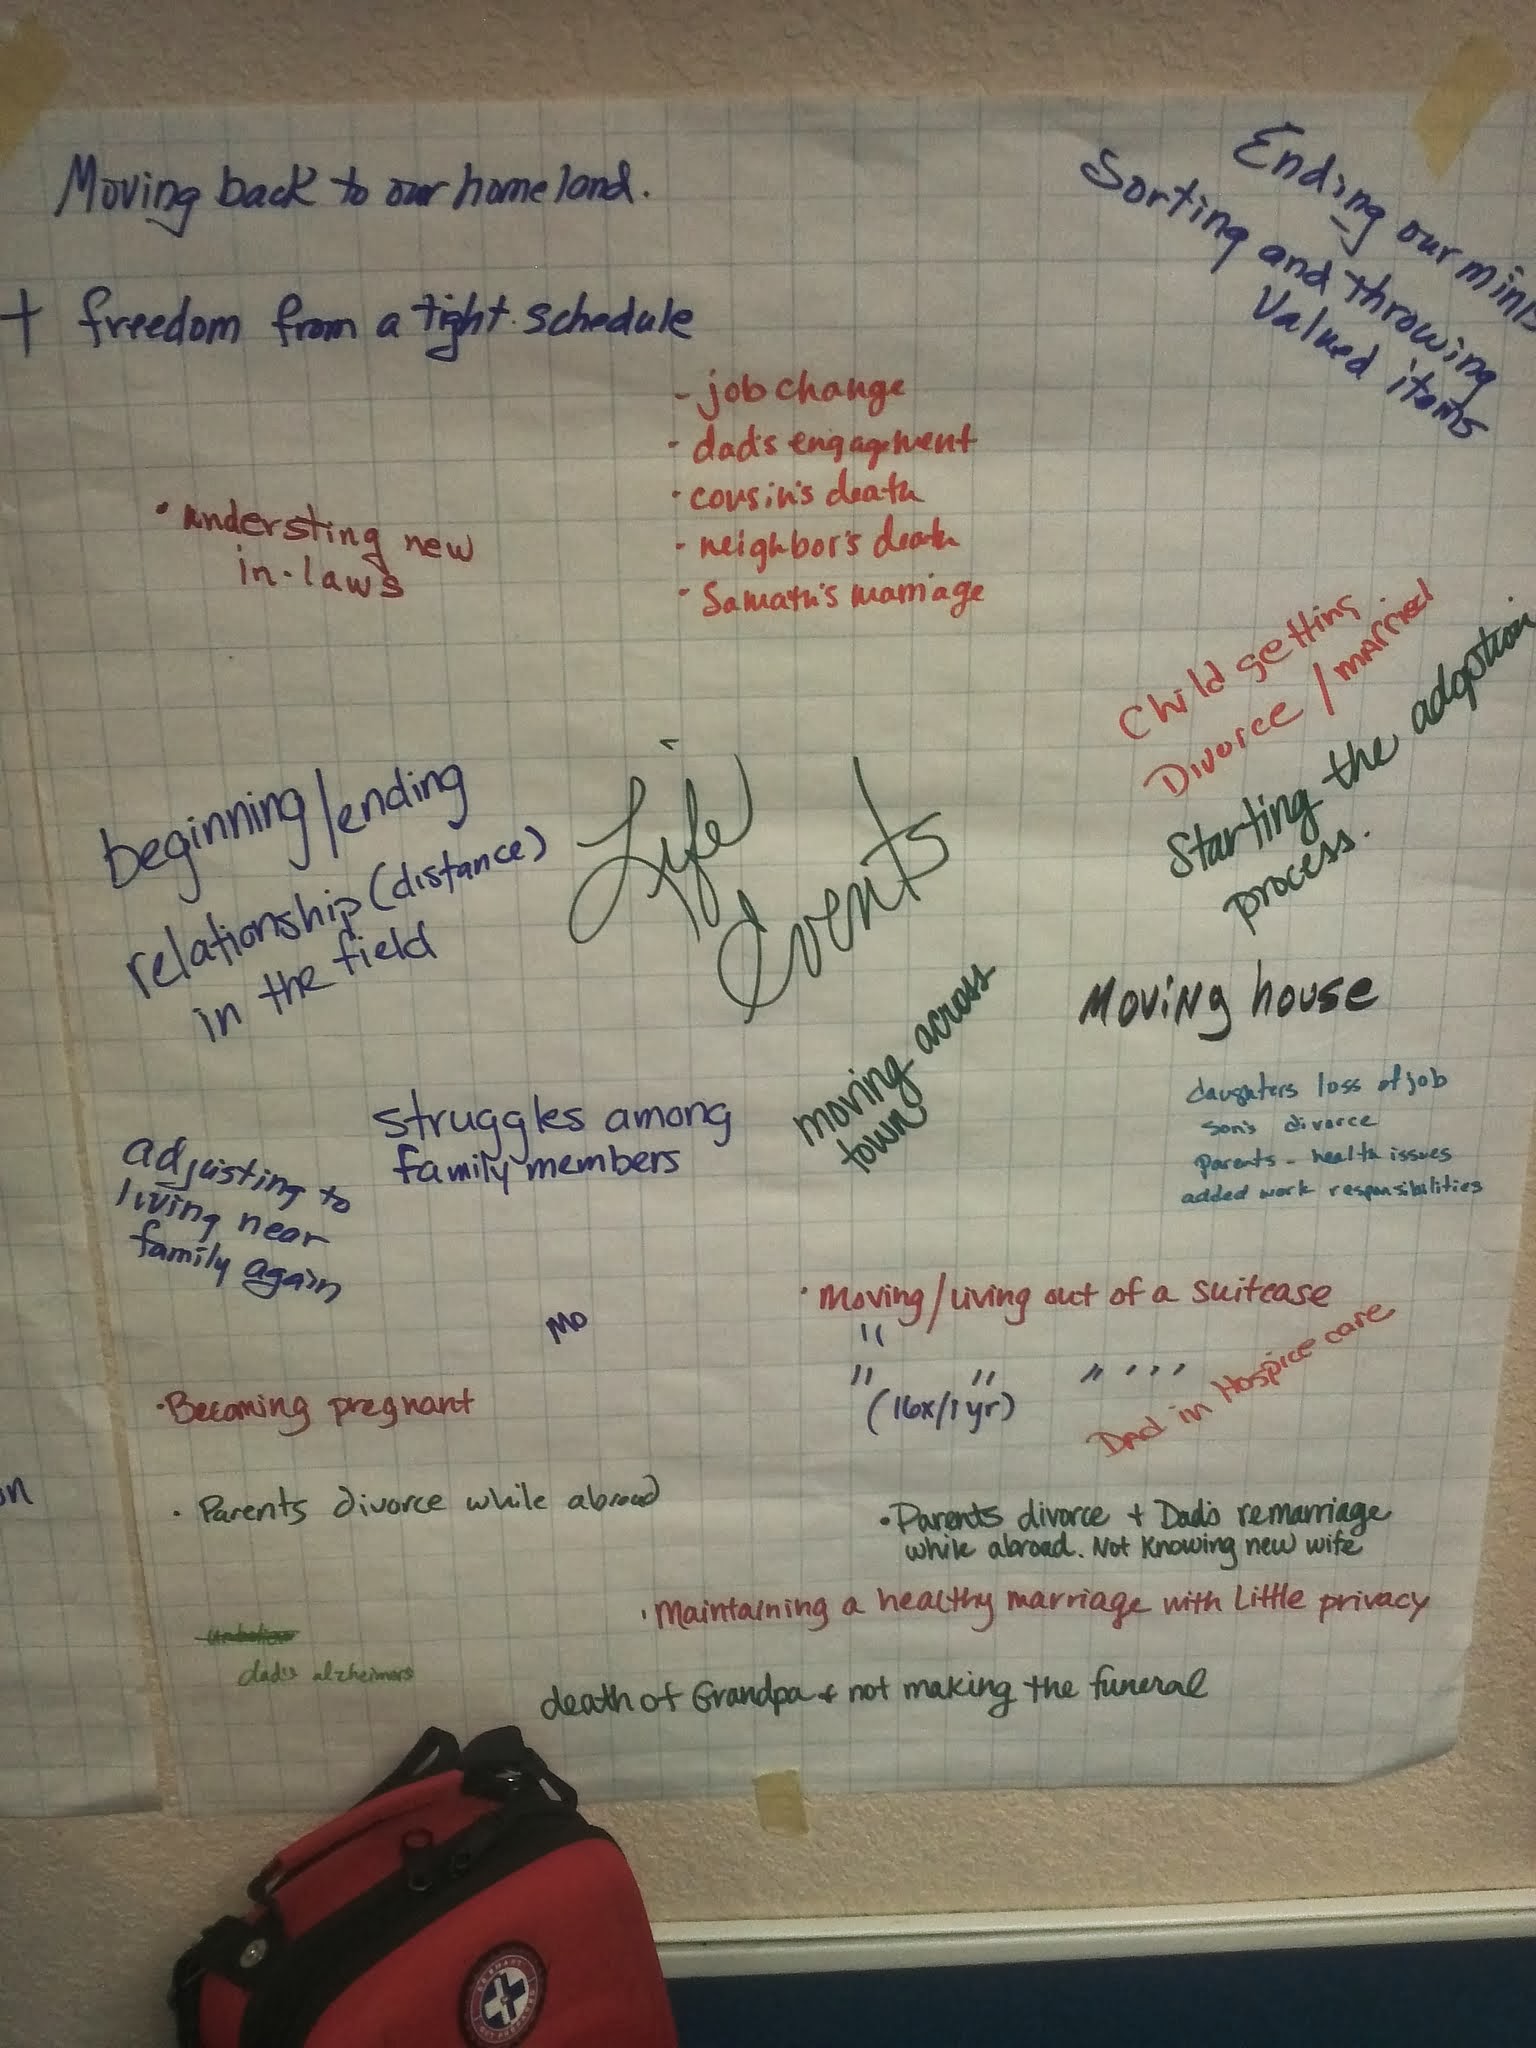 Moving back to our homeland.
Ending our minis
Sorting and throwing
Valued items
+ freedom from a tight schedule
- job change
- dad's engagement
· cousin's death
- neighbor's death
· marriage
· understing new
in-laws
Child getting
Divorce / married
Starting the adoption
process.
Life
Events
beginning/ending
relationship (distance)
in the field
Moving house
moving across
town
struggles among
family members
daughters loss of job
son's divorce
parents - health issues
added work responsibilities
adjusting to
living near
family again
MO
· Moving/Living out of a suitcase
"
" " " " " "
(16x/1 yr)
Dad in Hospice care
· Becoming pregnant
on
· Parents divorce while abroad
· Parents divorce + Dad's remarriage
while abroad. Not Knowing new wife
· Maintaining a healthy marriage with Little privacy
dad's alzheimers
death of Grandpa + not making the funeral